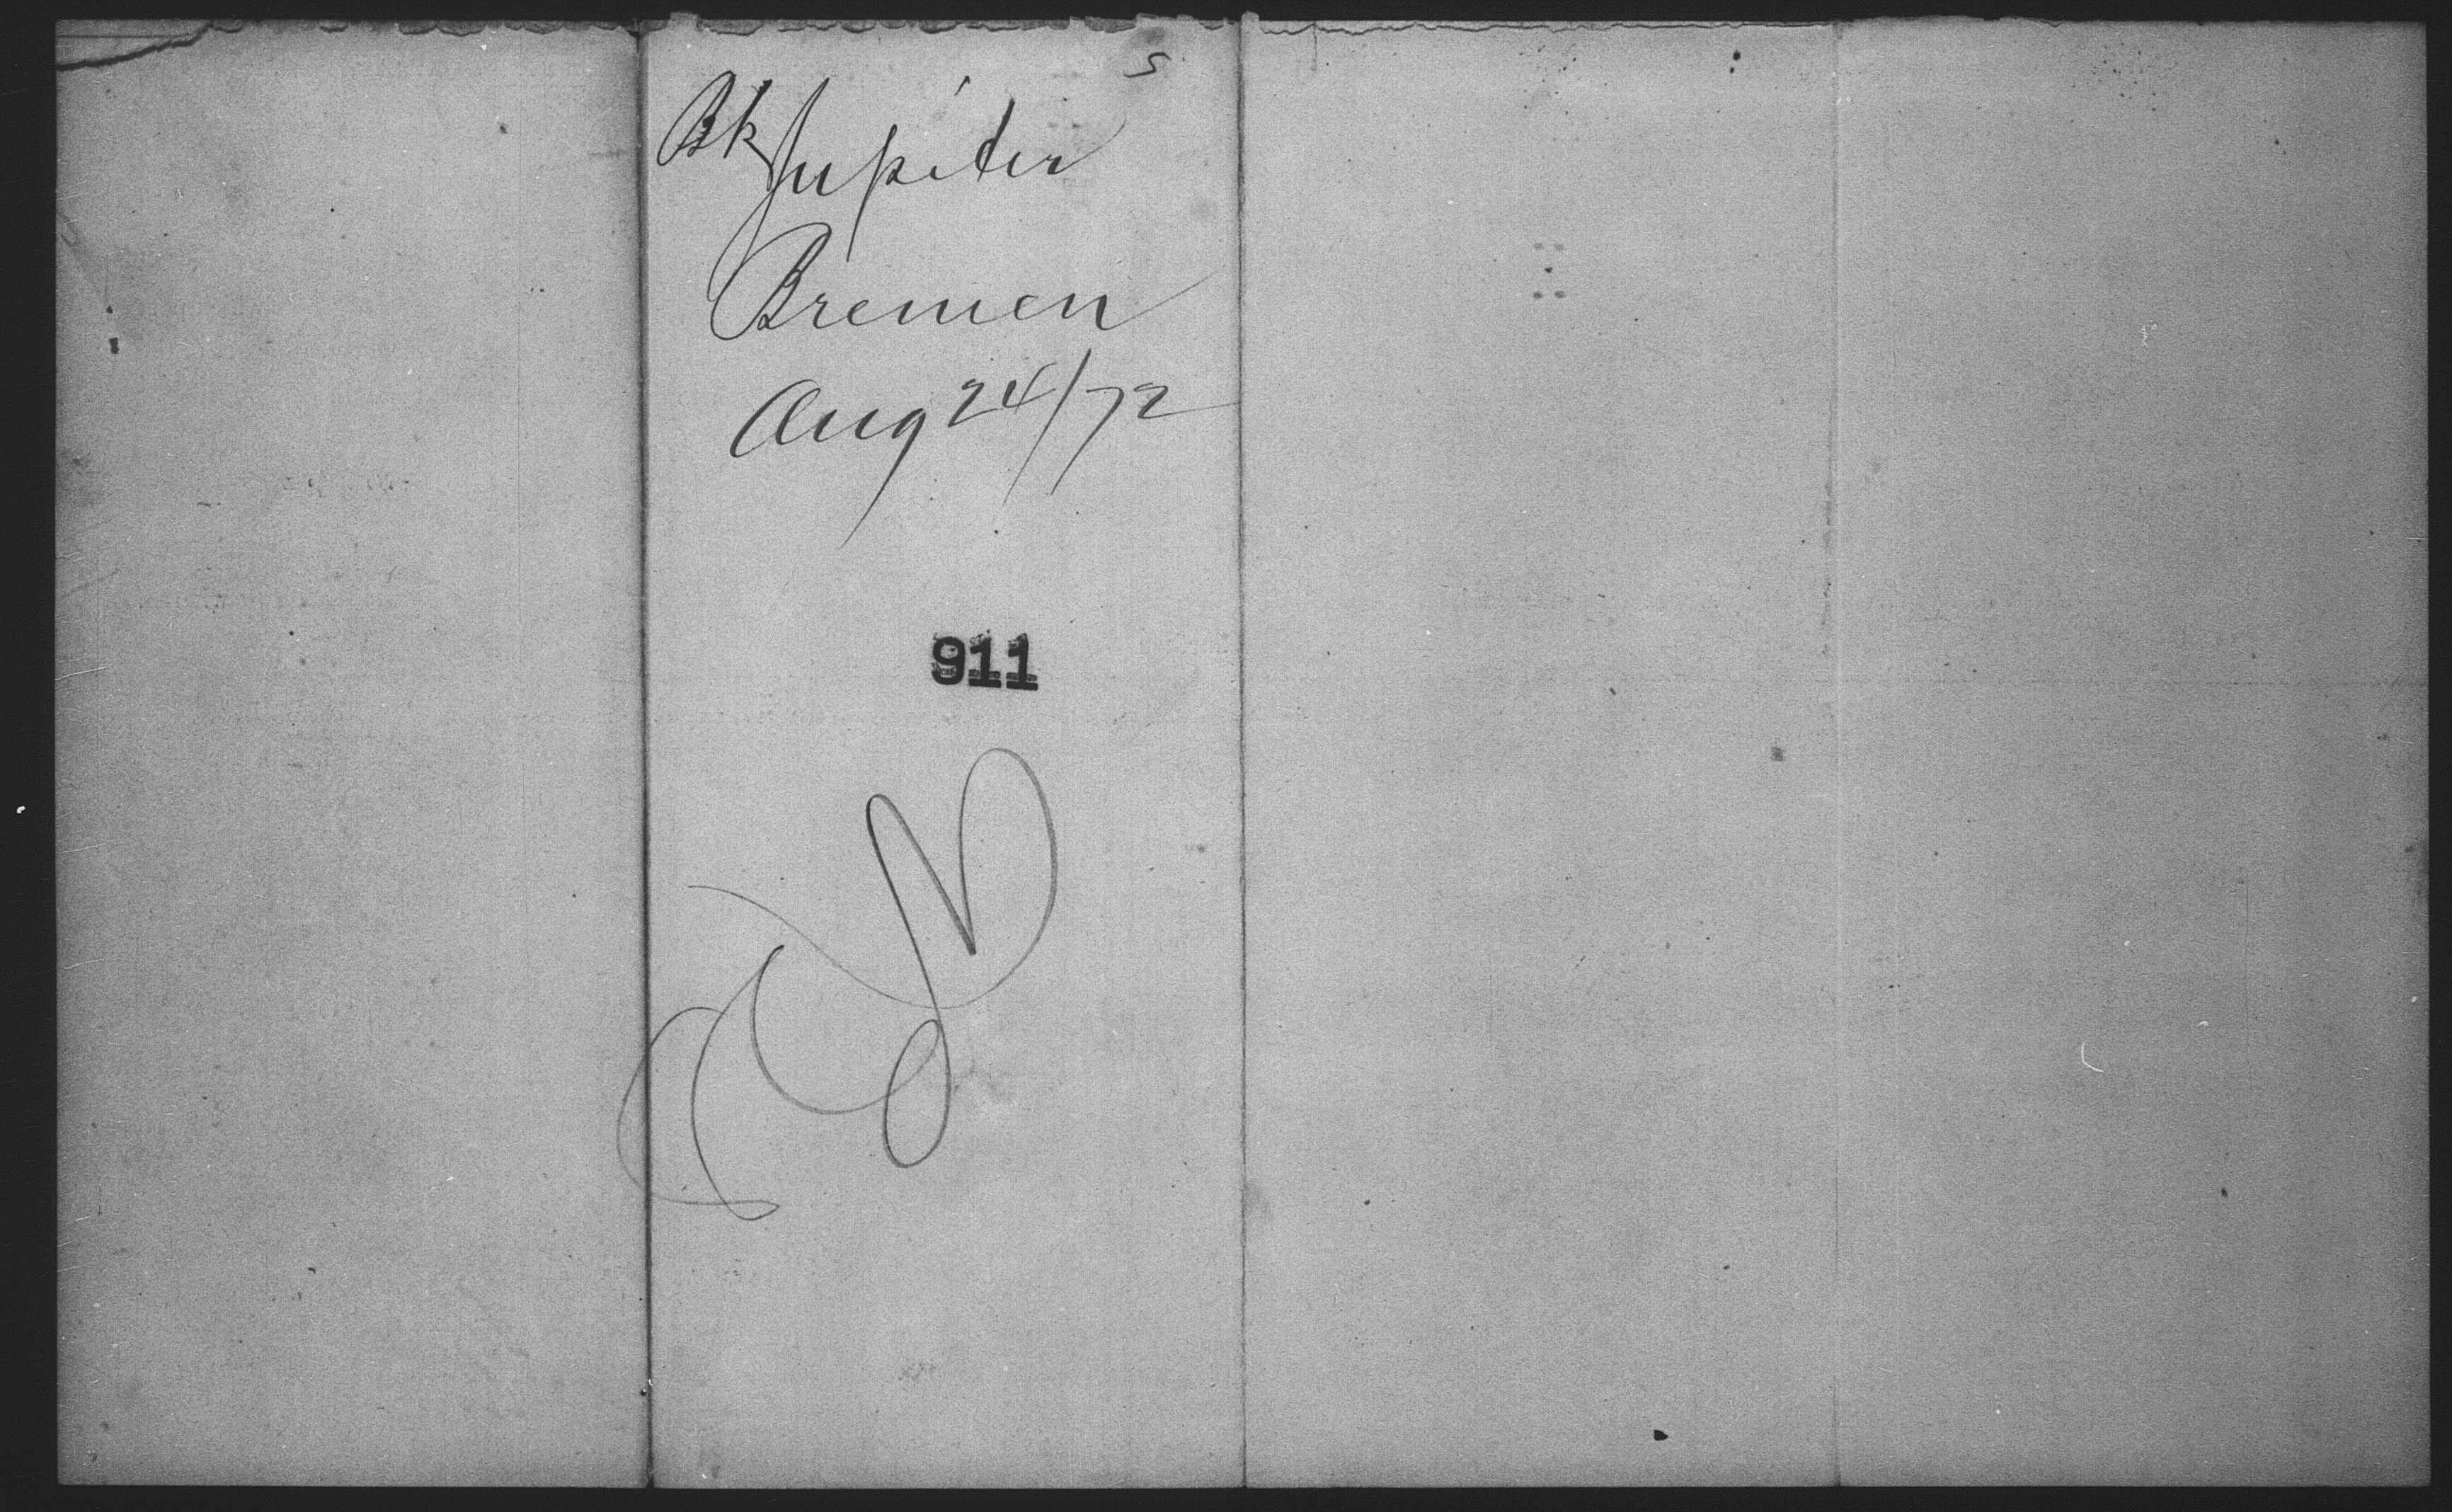 5
Bk Jupiter
Bremen
Aug 24/72
911